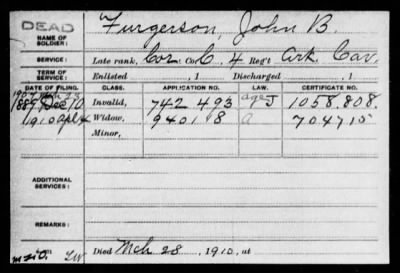 DEAD
NAME OF SOLDIER: Furgerson, John B.
SERVICE: Late rank, Cor. Co. C, 4 Reg't Ark. Cav.
TERM OF SERVICE: Enlisted , 1 Discharged , 1
DATE OF FILING. CLASS. APPLICATION NO. LAW. CERTIFICATE NO.
1889 Dec 10 Invalid, 742 493 age J 1058.808.
1910 Apl 4 Widow, 9401 8 a 704715
Minor,
ADDITIONAL SERVICES:
REMARKS:
Died Mch 28, 1910, at